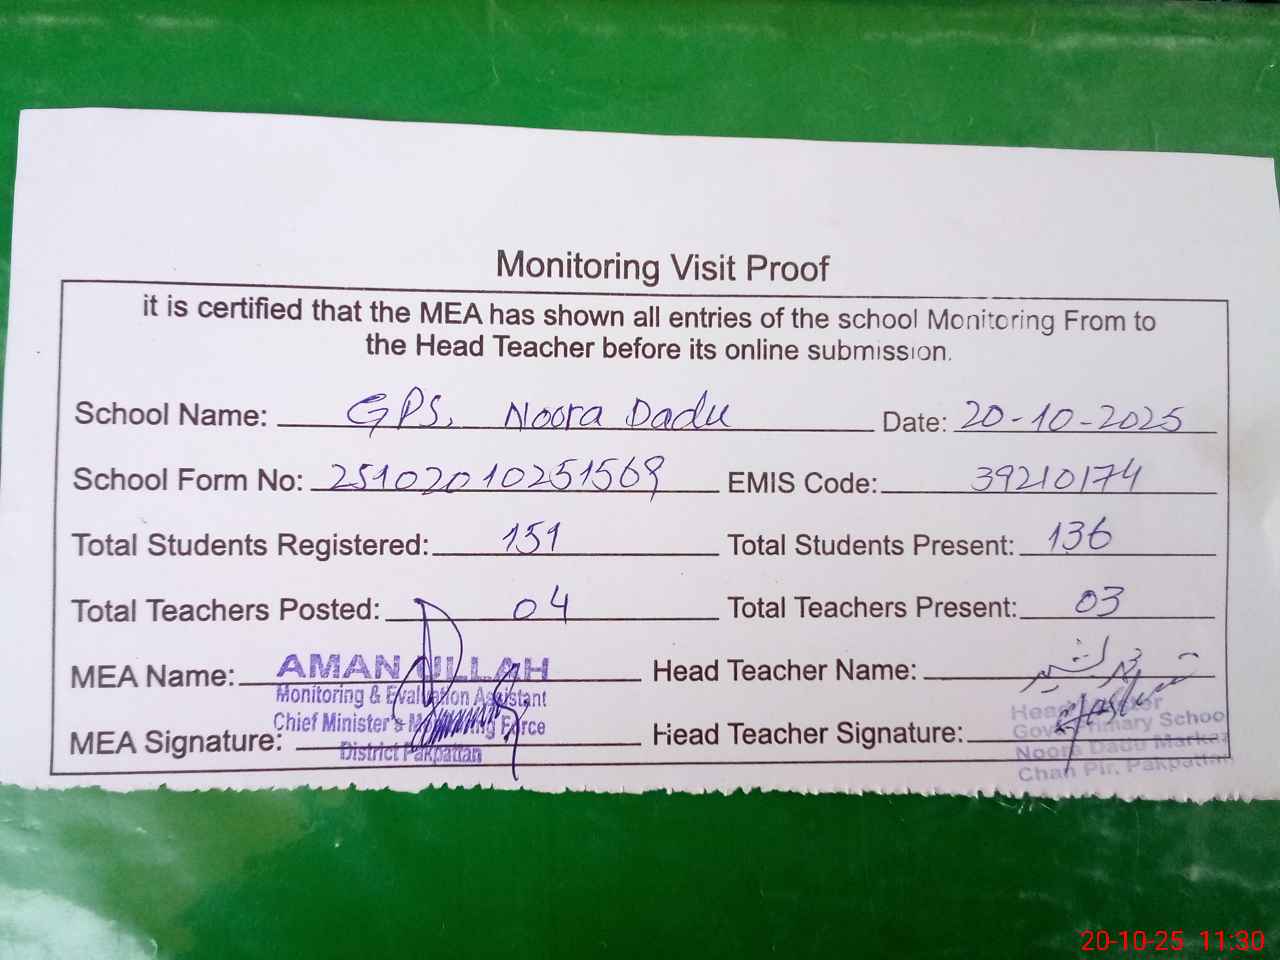 Monitoring Visit Proof
it is certified that the MEA has shown all entries of the school Monitoring From to
the Head Teacher before its online submission.
School Name: GPS. Noora Dadu Date: 20-10-2025
School Form No: 25102010251569 EMIS Code: 39210174
Total Students Registered: 151 Total Students Present: 136
Total Teachers Posted: 04 Total Teachers Present: 03
MEA Name: AMAN ULLAH Head Teacher Name:
Monitoring & Evaluation Assistant
Chief Minister's Monitoring Force
MEA Signature: Head Teacher Signature:
District Pakpattan
Govt Primary School
Noora Dadu Markaz
Chan Pir, Pakpattan
20-10-25 11:30